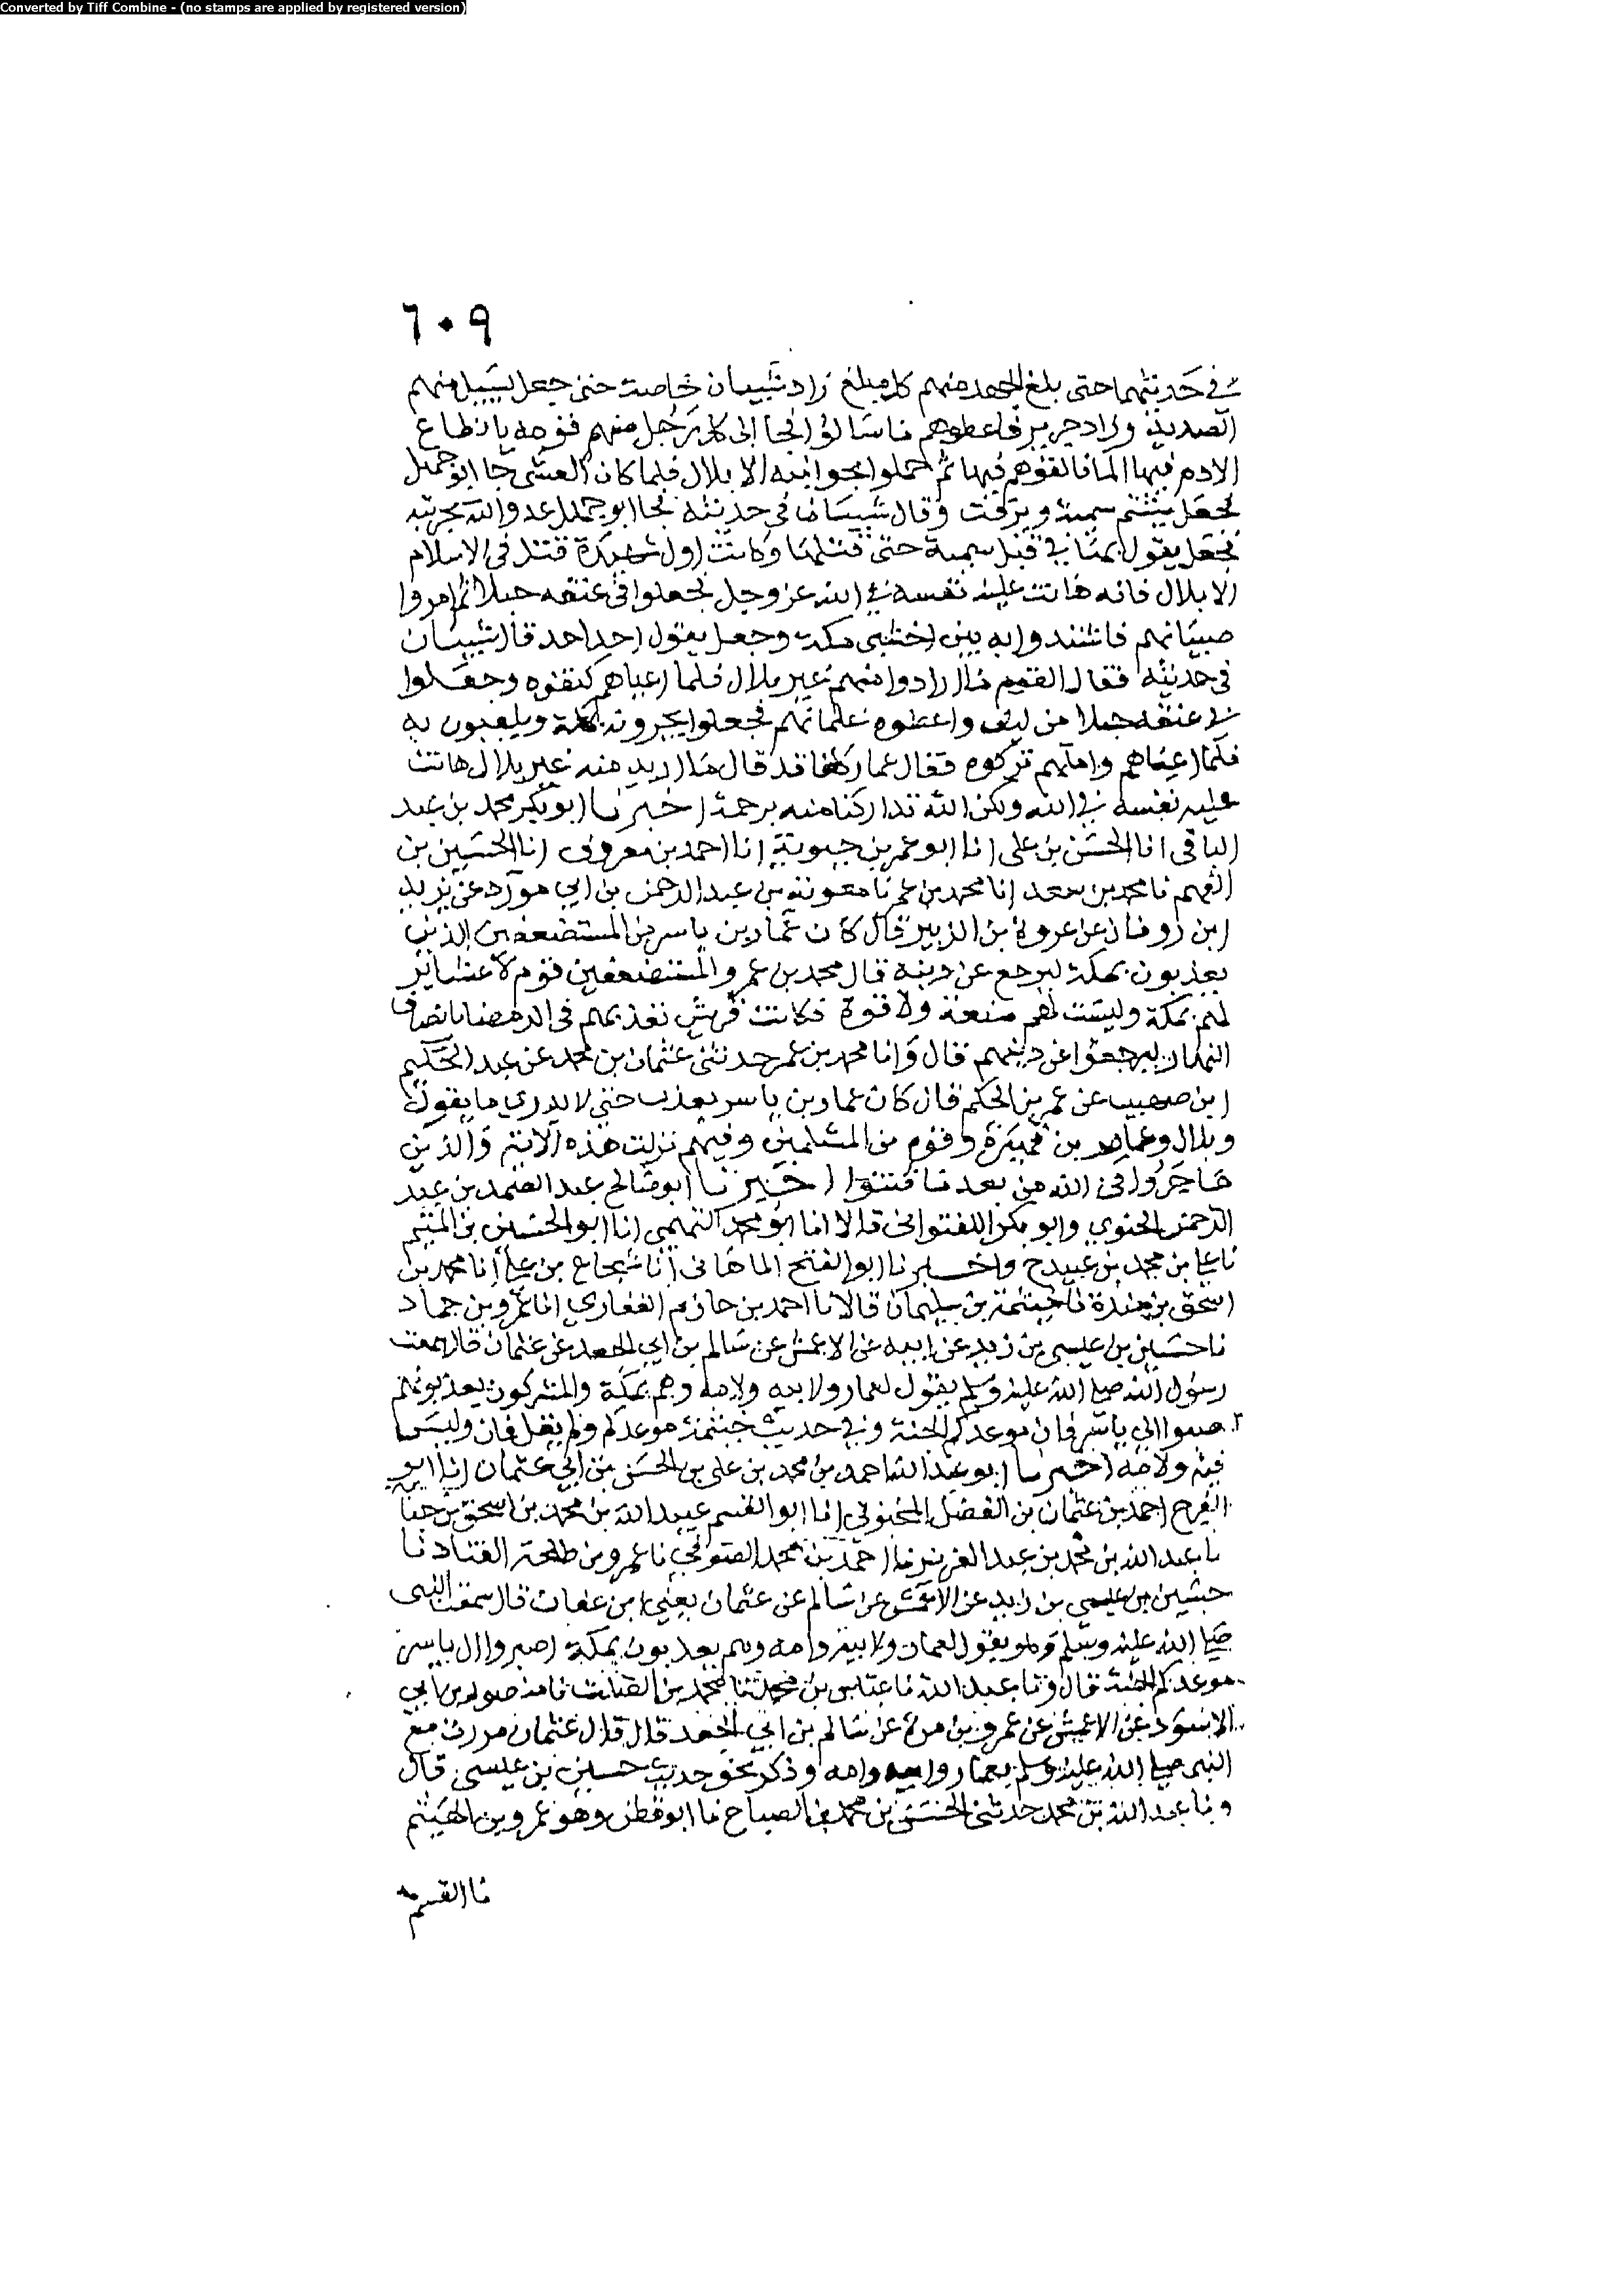 Converted by Tiff Combine - (no stamps are applied by registered version)
٦٠٩
في حديثهما حتى بلغ الجهد منهم كل مبلغ زاد شيبان خاصة حتى جعل يسيل منهم
الصديد وزاد جرير فاعطوهم ما سالوا فجا الى كل رجل منهم قومه بانطاع
الادم فيها الما فالقوهم فيها ثم حملوا بجوانبه الا بلال فلما كان العشى جا ابو جهل
فجعل يشتم سمية ويرفث وقال شيبان في حديثه فجا ابو جهل عدو الله بحربته
فجعل يقول بها في قبل سمية حتى قتلها وكانت اول شهيدة قتل في الاسلام
الا بلال فانه هانت عليه نفسه في الله عز وجل فجعلوا في عنقه حبلا ثم امروا
صبيانهم فاشتدوا به بين اخشبي مكة وجعل يقول احد احد قال شيبان
في حديثه فقال القوم ما ارادوا منهم غير بلال فلما اعياهم كتفوه وجعلوا
في عنقه حبلا من ليف واعطوه غلمانهم فجعلوا يجرونه بمكة ويلعبون به
فلما اعياهم واملهم تركوه فقال عمار كلنا قد قال ما اريد منه غير بلال هانت
عليه نفسه في الله ولكن الله تداركنا منه برحمة اخبرنا ابو بكر محمد بن عبد
الباقى انا الحسن بن على انا ابو عمر بن حيوية انا احمد بن معروف انا الحسين بن
الفهم نا محمد بن سعد انا محمد بن عمر نا معوية بن عبد الرحمن بن ابي مزرد عن يزيد
ابن رومان عن عروة بن الزبير قال كان عمار بن ياسر من المستضعفين الذين
يعذبون بمكة ليرجع عن دينه قال محمد بن عمر والمستضعفين قوم لا عشاير
لهم بمكة وليست لهم منعة ولا قوة فكانت قريش تعذبهم في الرمضا بانصاف
النهار ليرجعوا عن دينهم قال وانا محمد بن عمر حدثنى عثمان بن محمد عن عبد الحكيم
ابن صهيب عن عمر بن الحكم قال كان عمار بن ياسر يعذب حتى لا يدري ما يقول
وبلال وعامر بن فهيرة وقوم من المسلمين وفيهم نزلت هذه الاية والذين
هاجروا في الله من بعد ما فتنوا اخبرنا ابو صالح عبد الصمد بن عبد
الرحمن الحنوي وابو بكر اللفتوانى قالا انا ابو محمد التميمي انا ابو الحسين بن المتيم
نا علي بن محمد بن عبيد ح واخبرنا ابو الفتح الماهانى انا شجاع بن علي انا محمد بن
اسحق بن مندة نا خيثمة بن سليمان قالا نا احمد بن حازم الغفاري انا عمرو بن حماد
نا حسين بن عيسى بن زيد عن ابيه عن الاعمش عن سالم بن ابي الجعد عن عثمان قال سمعت
رسول الله صلى الله عليه وسلم يقول لعمار ولابيه ولامه وهم بمكة والمشركون يعذبونهم
صبرا ال ياسر فان موعدكم الجنة وفي حديث خيثمة موعدكم ولم يقل فان وليس
فيه ولامه اخبرنا ابو عبد الله احمد بن محمد بن على بن الحسن بن ابي عثمان انا ابو
الفرج احمد بن عثمان بن الفضل المخبزي انا ابو القسم عبيد الله بن محمد بن اسحق بن حبابة
نا عبد الله بن محمد بن عبد العزيز نا احمد بن محمد نا عمرو بن طلحة القناد نا
حسين بن عيسى بن زيد عن الاعمش عن سالم عن عثمان يعني ابن عفان قال سمعت النبى
صلى الله عليه وسلم وهو يقول لعمار ولابيه وامه وهم يعذبون بمكة اصبروا ال ياسر
موعدكم الجنة قال ونا عبد الله نا عباس بن محمد نا محمد بن الصلت نا منصور بن ابي
الاسود عن الاعمش عن عمرو بن مرة عن سالم بن ابي الجعد قال قال عثمان مررت مع
النبى صلى الله عليه وسلم بعمار وابيه وامه وذكر نحو حديث حسين بن عيسى قال
ونا عبد الله بن محمد حدثنى الحسن بن محمد بن الصباح نا ابو قطن وهو عمرو بن الهيثم
نا القسم